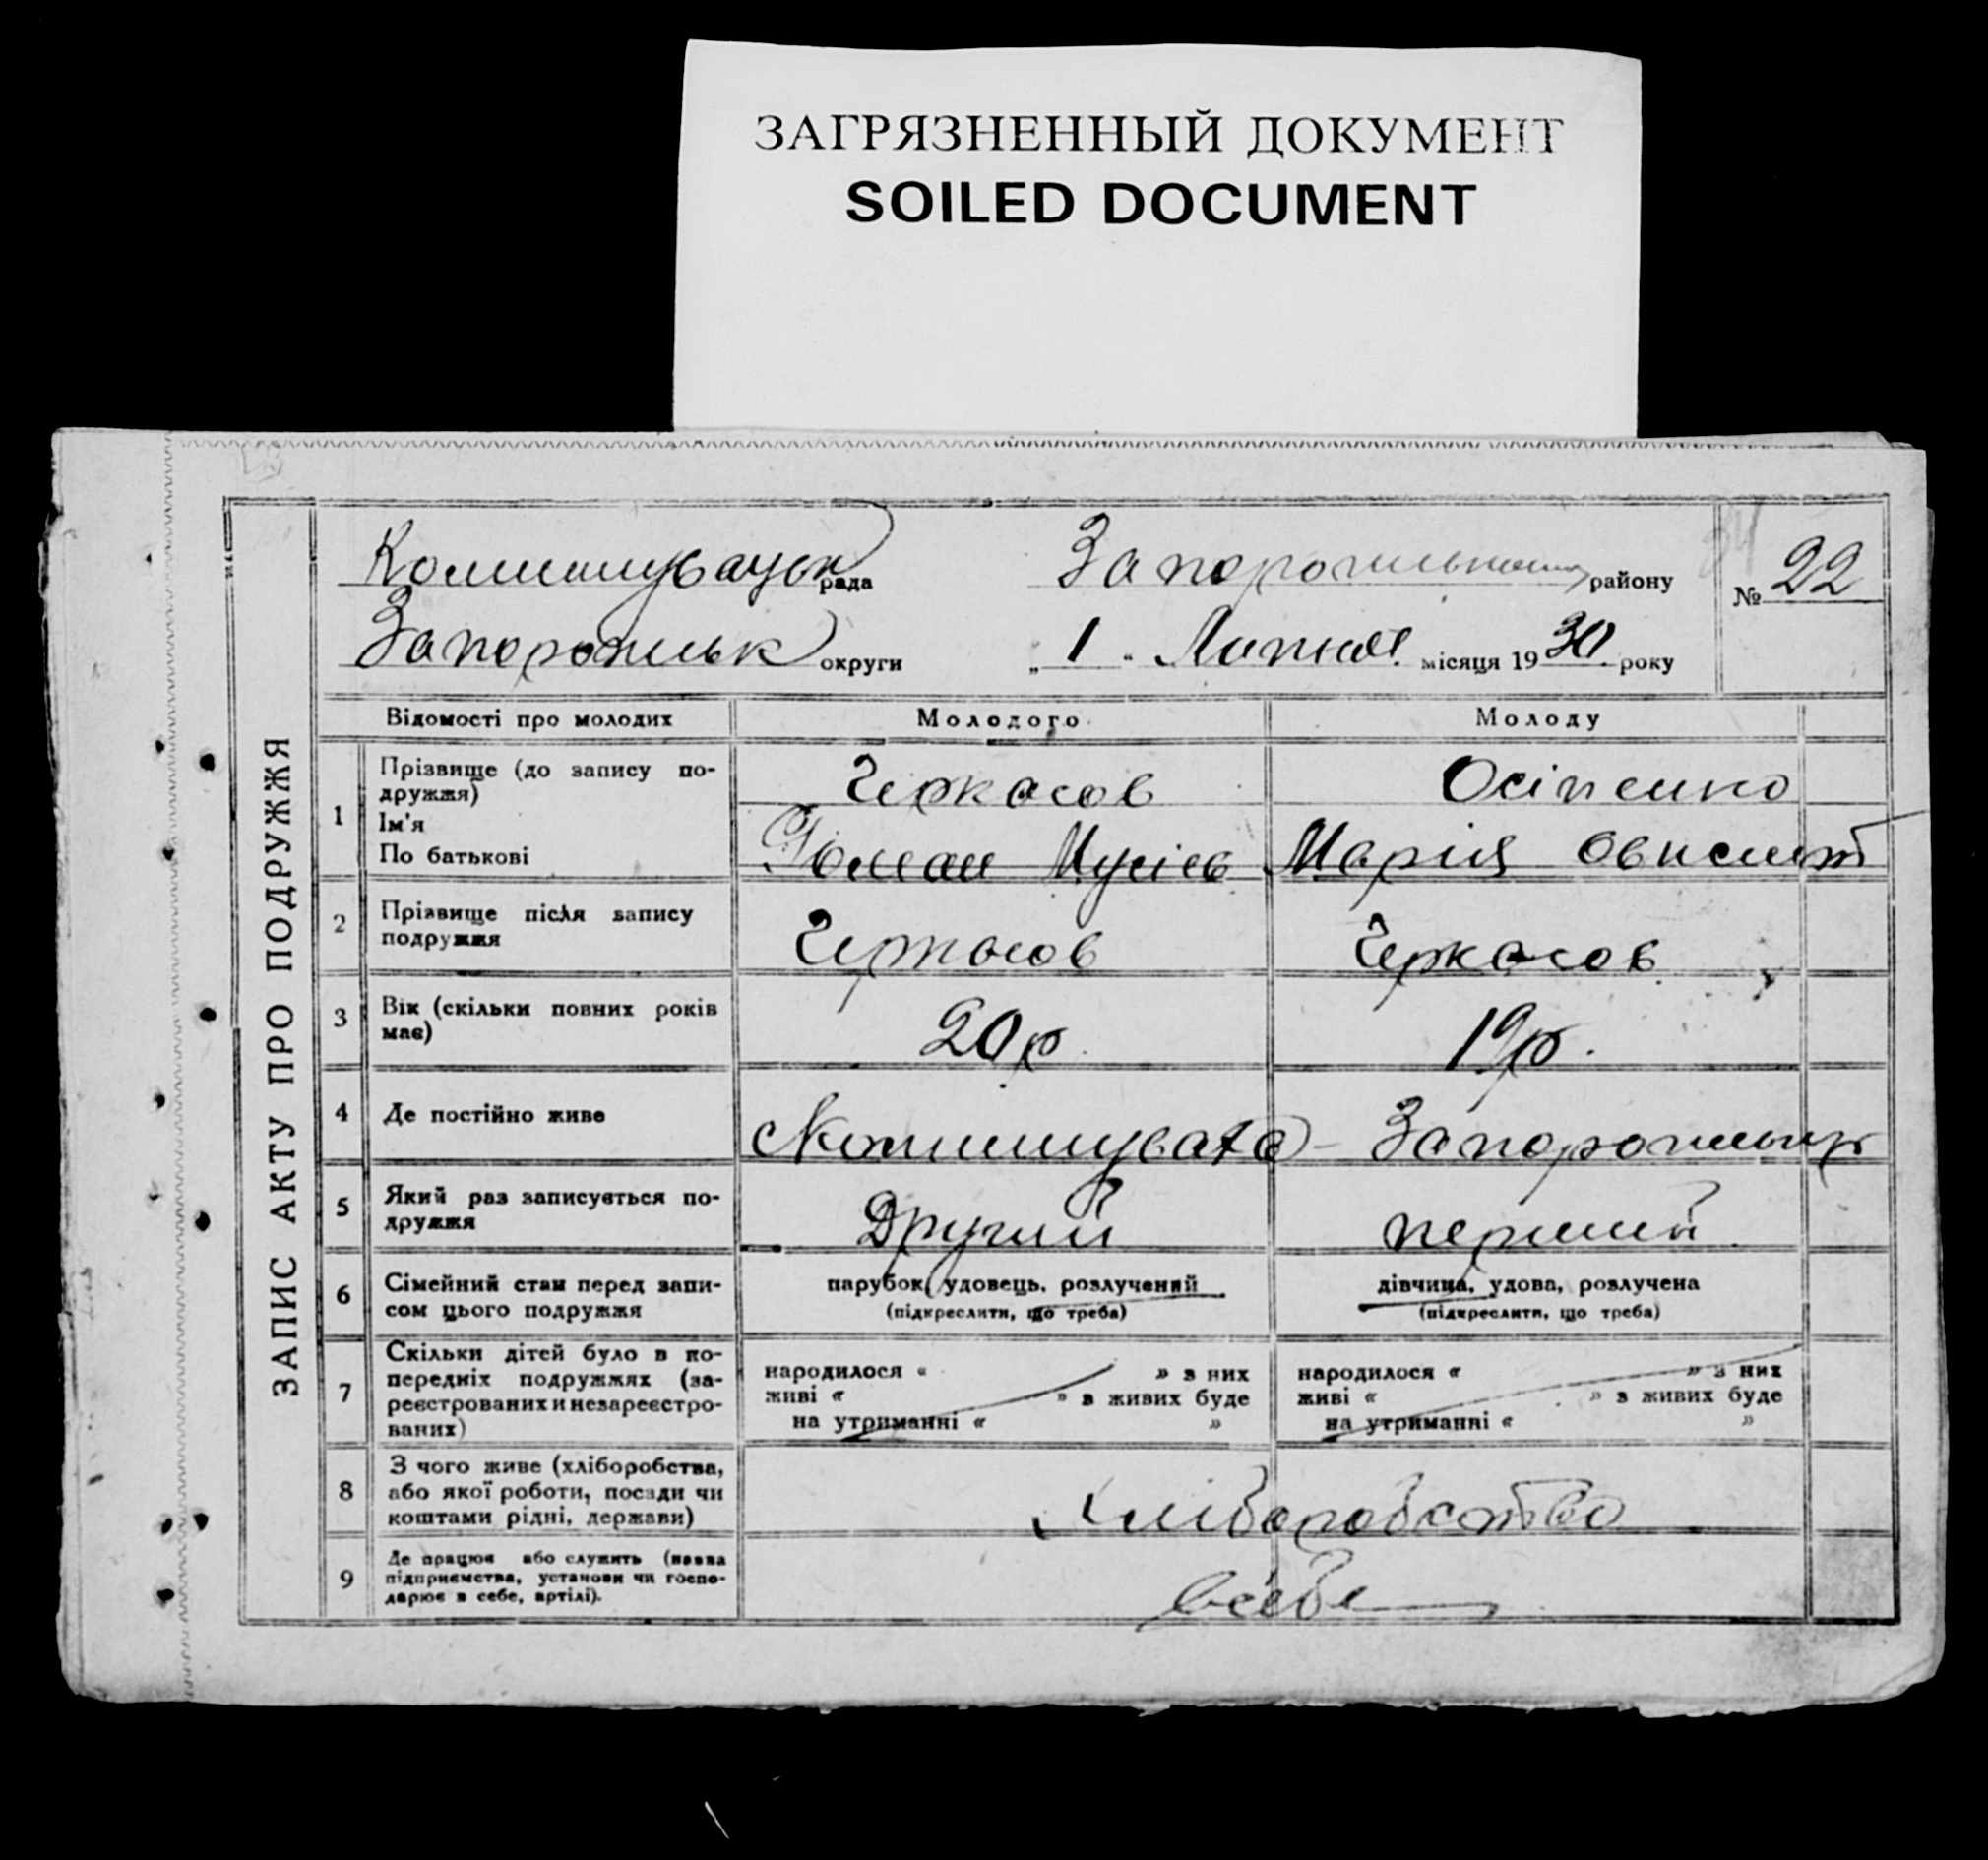 ЗАГРЯЗНЕННЫЙ ДОКУМЕНТ
SOILED DOCUMENT
ЗАПИС АКТУ ПРО ПОДРУЖЖЯ
Комишувацьк рада Запорожський району № 22
Запорожськ округи „1" Липня місяця 1930 року
Відомості про молодих Молодого Молоду
1 Прізвище (до запису по-
дружжя) Черкасов Осіпенко
Ім'я
По батькові Роман Мусіев Марія Овксент
2 Прізвище після запису
подружжя Черкасов Черкасов
3 Вік (скільки повних років
має) 20 р. 19 р.
4 Де постійно живе Комишувата - Запорожськ
5 Який раз записується по-
дружжя Другий перший
6 Сімейний стан перед запи-
сом цього подружжя
парубок, удовець, розлучений дівчина, удова, розлучена
(підкреслити, що треба) (підкреслити, що треба)
7 Скільки дітей було в по-
передніх подружжях (за-
реєстрованих и незареєстро-
ваних)
народилося « » з них народилося « » з них
живі « » в живих буде живі « » з живих буде
на утриманні « » на утриманні « »
8 З чого живе (хліборобства,
або якої роботи, посади чи
коштами рідні, держави) Хліборобство
9 Де працює або служить (назва
підприємства, установи чи госпо-
дарює в себе, артілі). в себе